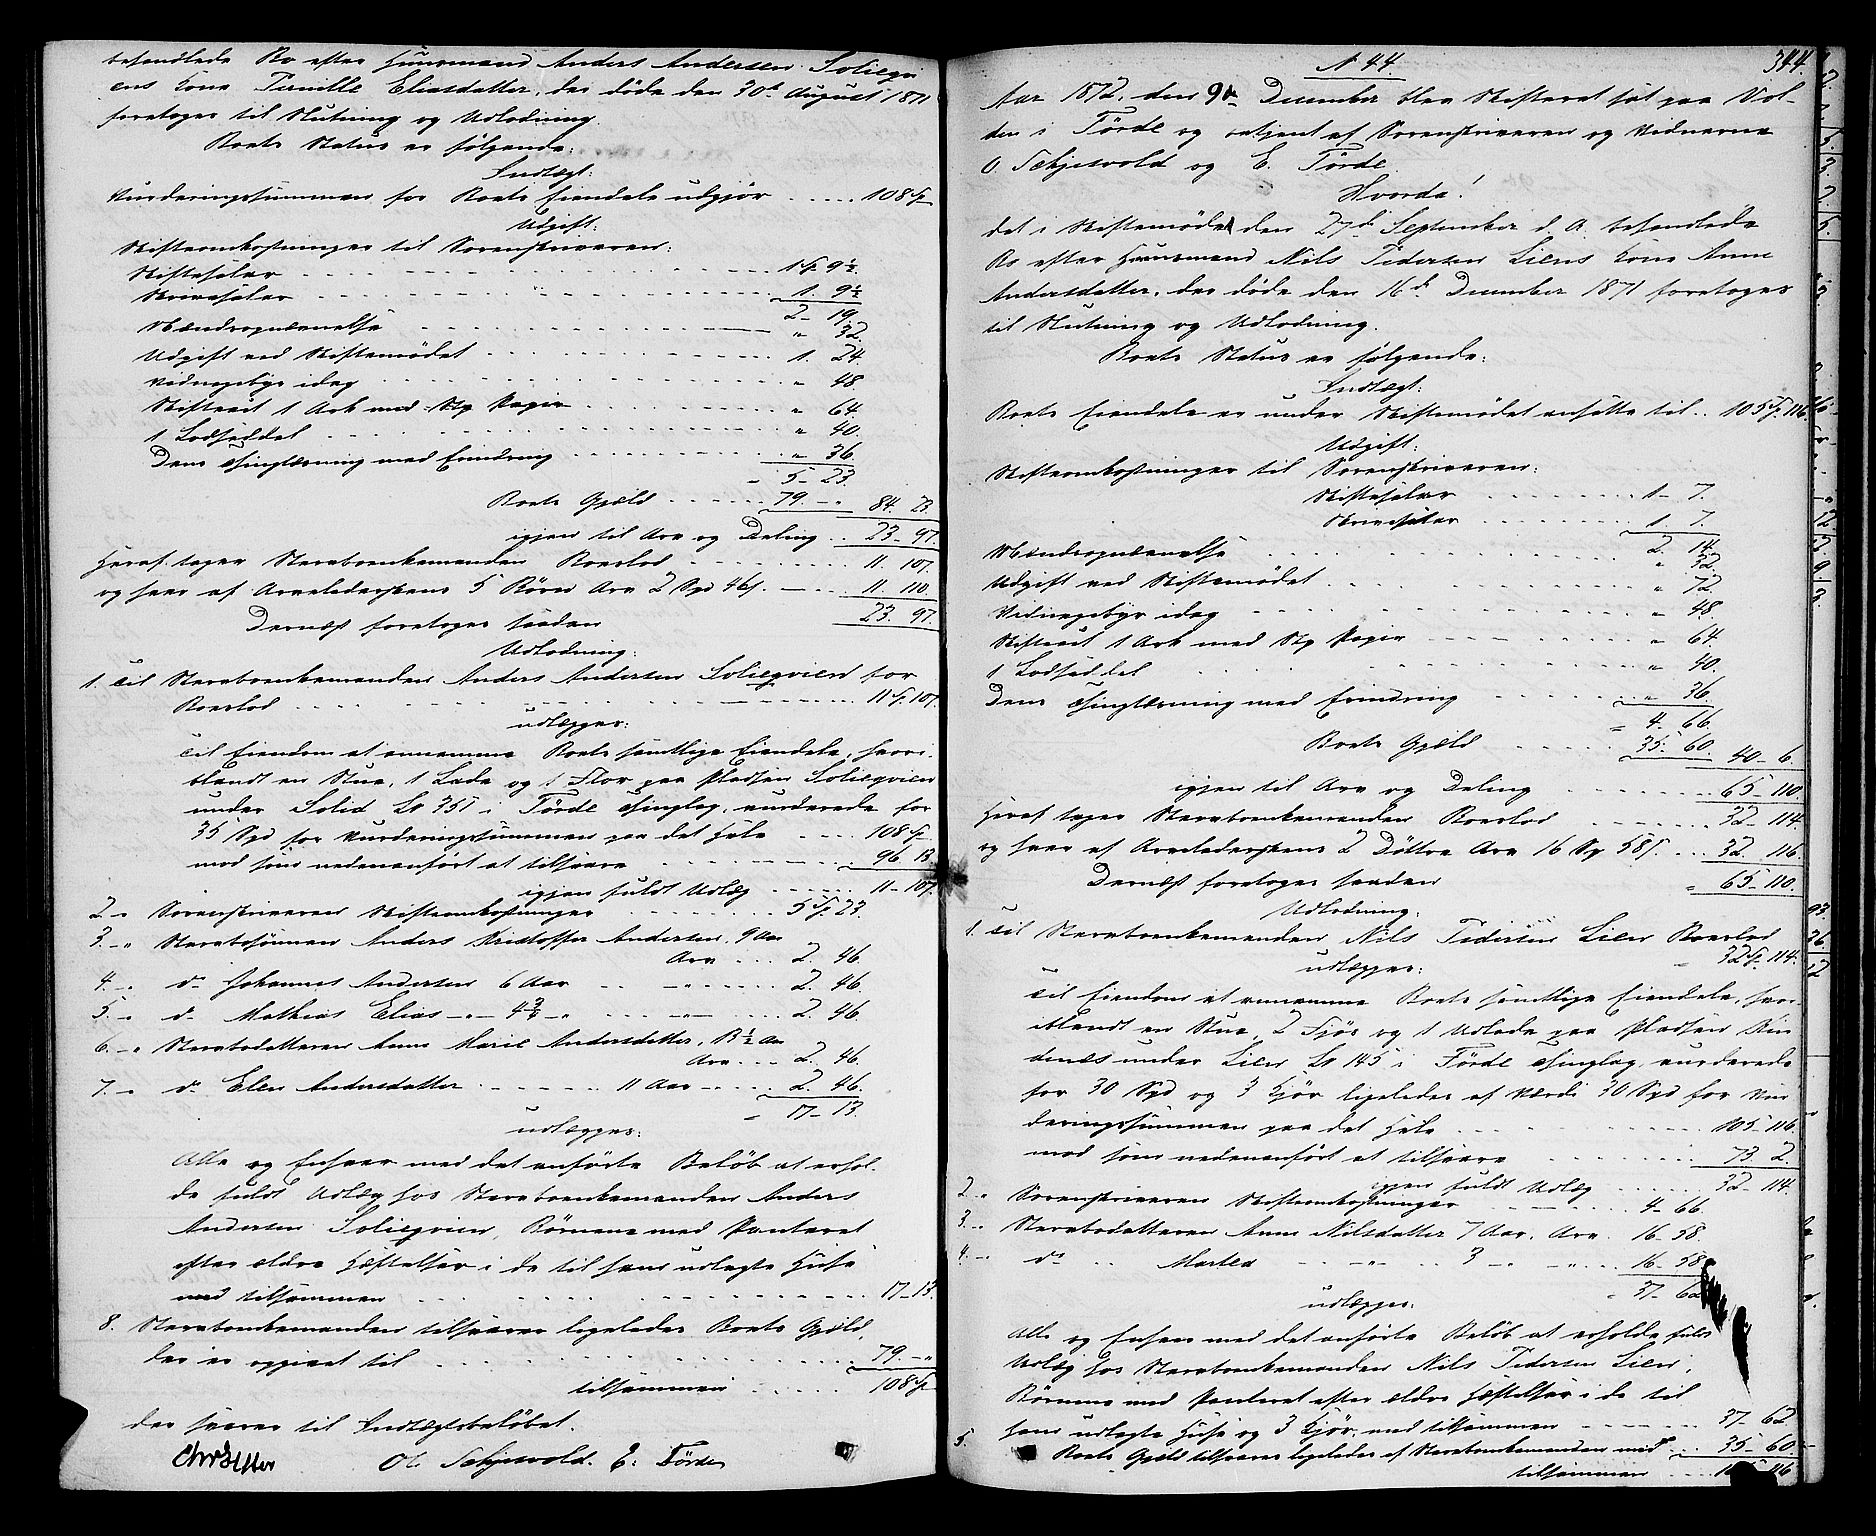 behandlede Bo efter Huusmand Anders Andersen Soliegvi
ens Kone Pernille Eliasdatter, der döde den 30te August 1871
foretoges til Slutning og Udlodning.
Boets Status er følgende:
Indtægt:
Vurderingssummen for Boets Eiendele udgjør ..... 108 Sp
Udgift:
Skifteomkostninger til Sorenskriveren:
Skiftesalær 1 Sp 9½.
Skrivesalær 1. 9½
2 - 19.
Mændsopnævnelse " 32.
Udgift ved Skiftemødet 1. 24
Vidnegebyr idag " 48.
Skifteact 1 Ark med Stp Papir " 64
1 Lodseddel " 40.
Dens Thinglæsning med Erindring " 36
5 - 23.
Boets Gjæld 79. - " 84. 23.
igjen til Arv og Deling 23 - 97.
Heraf tager Stervboenkemanden Boeslod 11. 107.
og hver af Arveladerskens 5 Börn Arv 2 Spd 46 s. 11. 110.
23. 97.
Dernæst foretoges saadan
Udlodning:
1. Til Stervboenkemanden Anders Andersen Soliegvien for
Boeslod 11 Sp. 107.
udlægges:
Til Eiendom at annamme Boets samtlige Eiendele, hvori-
blandt en Stue, 1 Lade og 1 Flor paa Pladsen Soliegvien
under Solid Lr 351 i Førde Thinglag, vurderede for
35 Spd for Vurderingssummen paa det Hele 108 Sp
mod som nedenanført at tilsvare 96 13.
igjen fuldt Udlæg 11 - 107.
2 - Sorenskriveren Skifteomkostninger 5 Sp. 23.
3. - " Stervbosønnen Anders Kristoffer Andersen, 9 Aar
Arv 2. 46.
4. - " do Johannes Andersen 6 Aar - " - 2. 46.
5. - " do Mathias Elias - " - 4¾ - " - 2. 46.
6. - " Stervbodatteren Anne Marie Andersdatter, 13½ Aar
Arv 2. 46.
7. - " do Elen Andersdatter 11 Aar 2. 46.
17 - 13.
udlægges:
Alle og Enhver med det anførte Beløb at erhol-
de fuldt Udlæg hos Stervboenkemanden Anders
Andersen Soliegvien, Børnene med Panteret
efter ældre Hæftelser i de til ham udlagte Huse
med tilsammen 17 - 13.
8. Stervboenkemanden tilsvarer ligeledes Boets Gjæld,
der er opgivet til 79. - "
tilsammen 108 Sp
der svarer til Indtægtsbeløbet.
Ol. Schjesvold. E. Förde
N 44
344.
Aar 1872, den 9de December blev Skifteret sat paa Vol-
den i Förde og betjent af Sorenskriveren og Vidnerne
O. Schjesvold og E. Förde
Hvorda!
det i Skiftemødet den 27de September d. A. behandlede
Bo efter Huusmand Nils Pedersen Liens Kone Anne
Andersdatter, der döde den 16de December 1871 foretoges
til Slutning og Udlodning.
Boets Status er følgende:
Indtægt:
Boets Eiendele er under Skiftemødet ansatte til .. 105 Sp. 116
Udgift:
Skifteomkostninger til Sorenskriveren:
Skiftesalær 1 - 7.
Skrivesalær 1. 7.
2. 14.
Mændsopnævnelse " 32.
Udgift ved Skiftemødet " 72.
Vidnegebyr idag " 48.
Skifteact 1 Ark med Stp Papir " 64.
1 Lodseddel " 40.
Dens Thinglæsning med Erindring " 36.
4. 66
Boets Gjæld 35. 60. 40 - 6.
igjen til Arv og Deling 65 - 110.
Heraf tager Stervboenkemanden Boeslod 32 - 114.
og hver af Arveladerskens 2 Döttre Arv 16 Sp 58 s. 32. 116.
Dernæst foretoges saadan 65 - 110.
Udlodning:
1. Til Stervboenkemanden Nils Pedersen Lien Boeslod
32 Sp. 114.
udlægges:
Til Eiendom at annamme Boets samtlige Eiendele, hvor-
iblandt en Stue, 2 Fjøs og 1 Udlade paa Pladsen
under Lien Lr 145 i Førde Thinglag, vurderede
for 30 Spd og 3 Kjør ligeledes af Værdi 30 Spd for Vur-
deringssummen paa det Hele 105 - 116
mod som nedenanført at tilsvare 73. 2.
igjen fuldt Udlæg 32 - 114.
2. " Sorenskriveren Skifteomkostninger 4 - 66.
3. - " Stervbodatteren Anne Nilsdatter 7 Aar, Arv 16 - 58.
4. - " do Marthea - " - 3 - " - 16 - 58
37 - 62
udlægges:
Alle og Enhver med det anførte Beløb at erholde fuldt
Udlæg hos Stervboenkemanden Nils Pedersen Lien,
Børnene med Panteret efter ældre Hæftelser i de til
ham udlagte Huse og 3 Kjør, med tilsammen 37 - 62
5. Boets Gjæld tilsvarer ligeledes af Stervboenkemanden med 35 - 60.
tilsammen 116